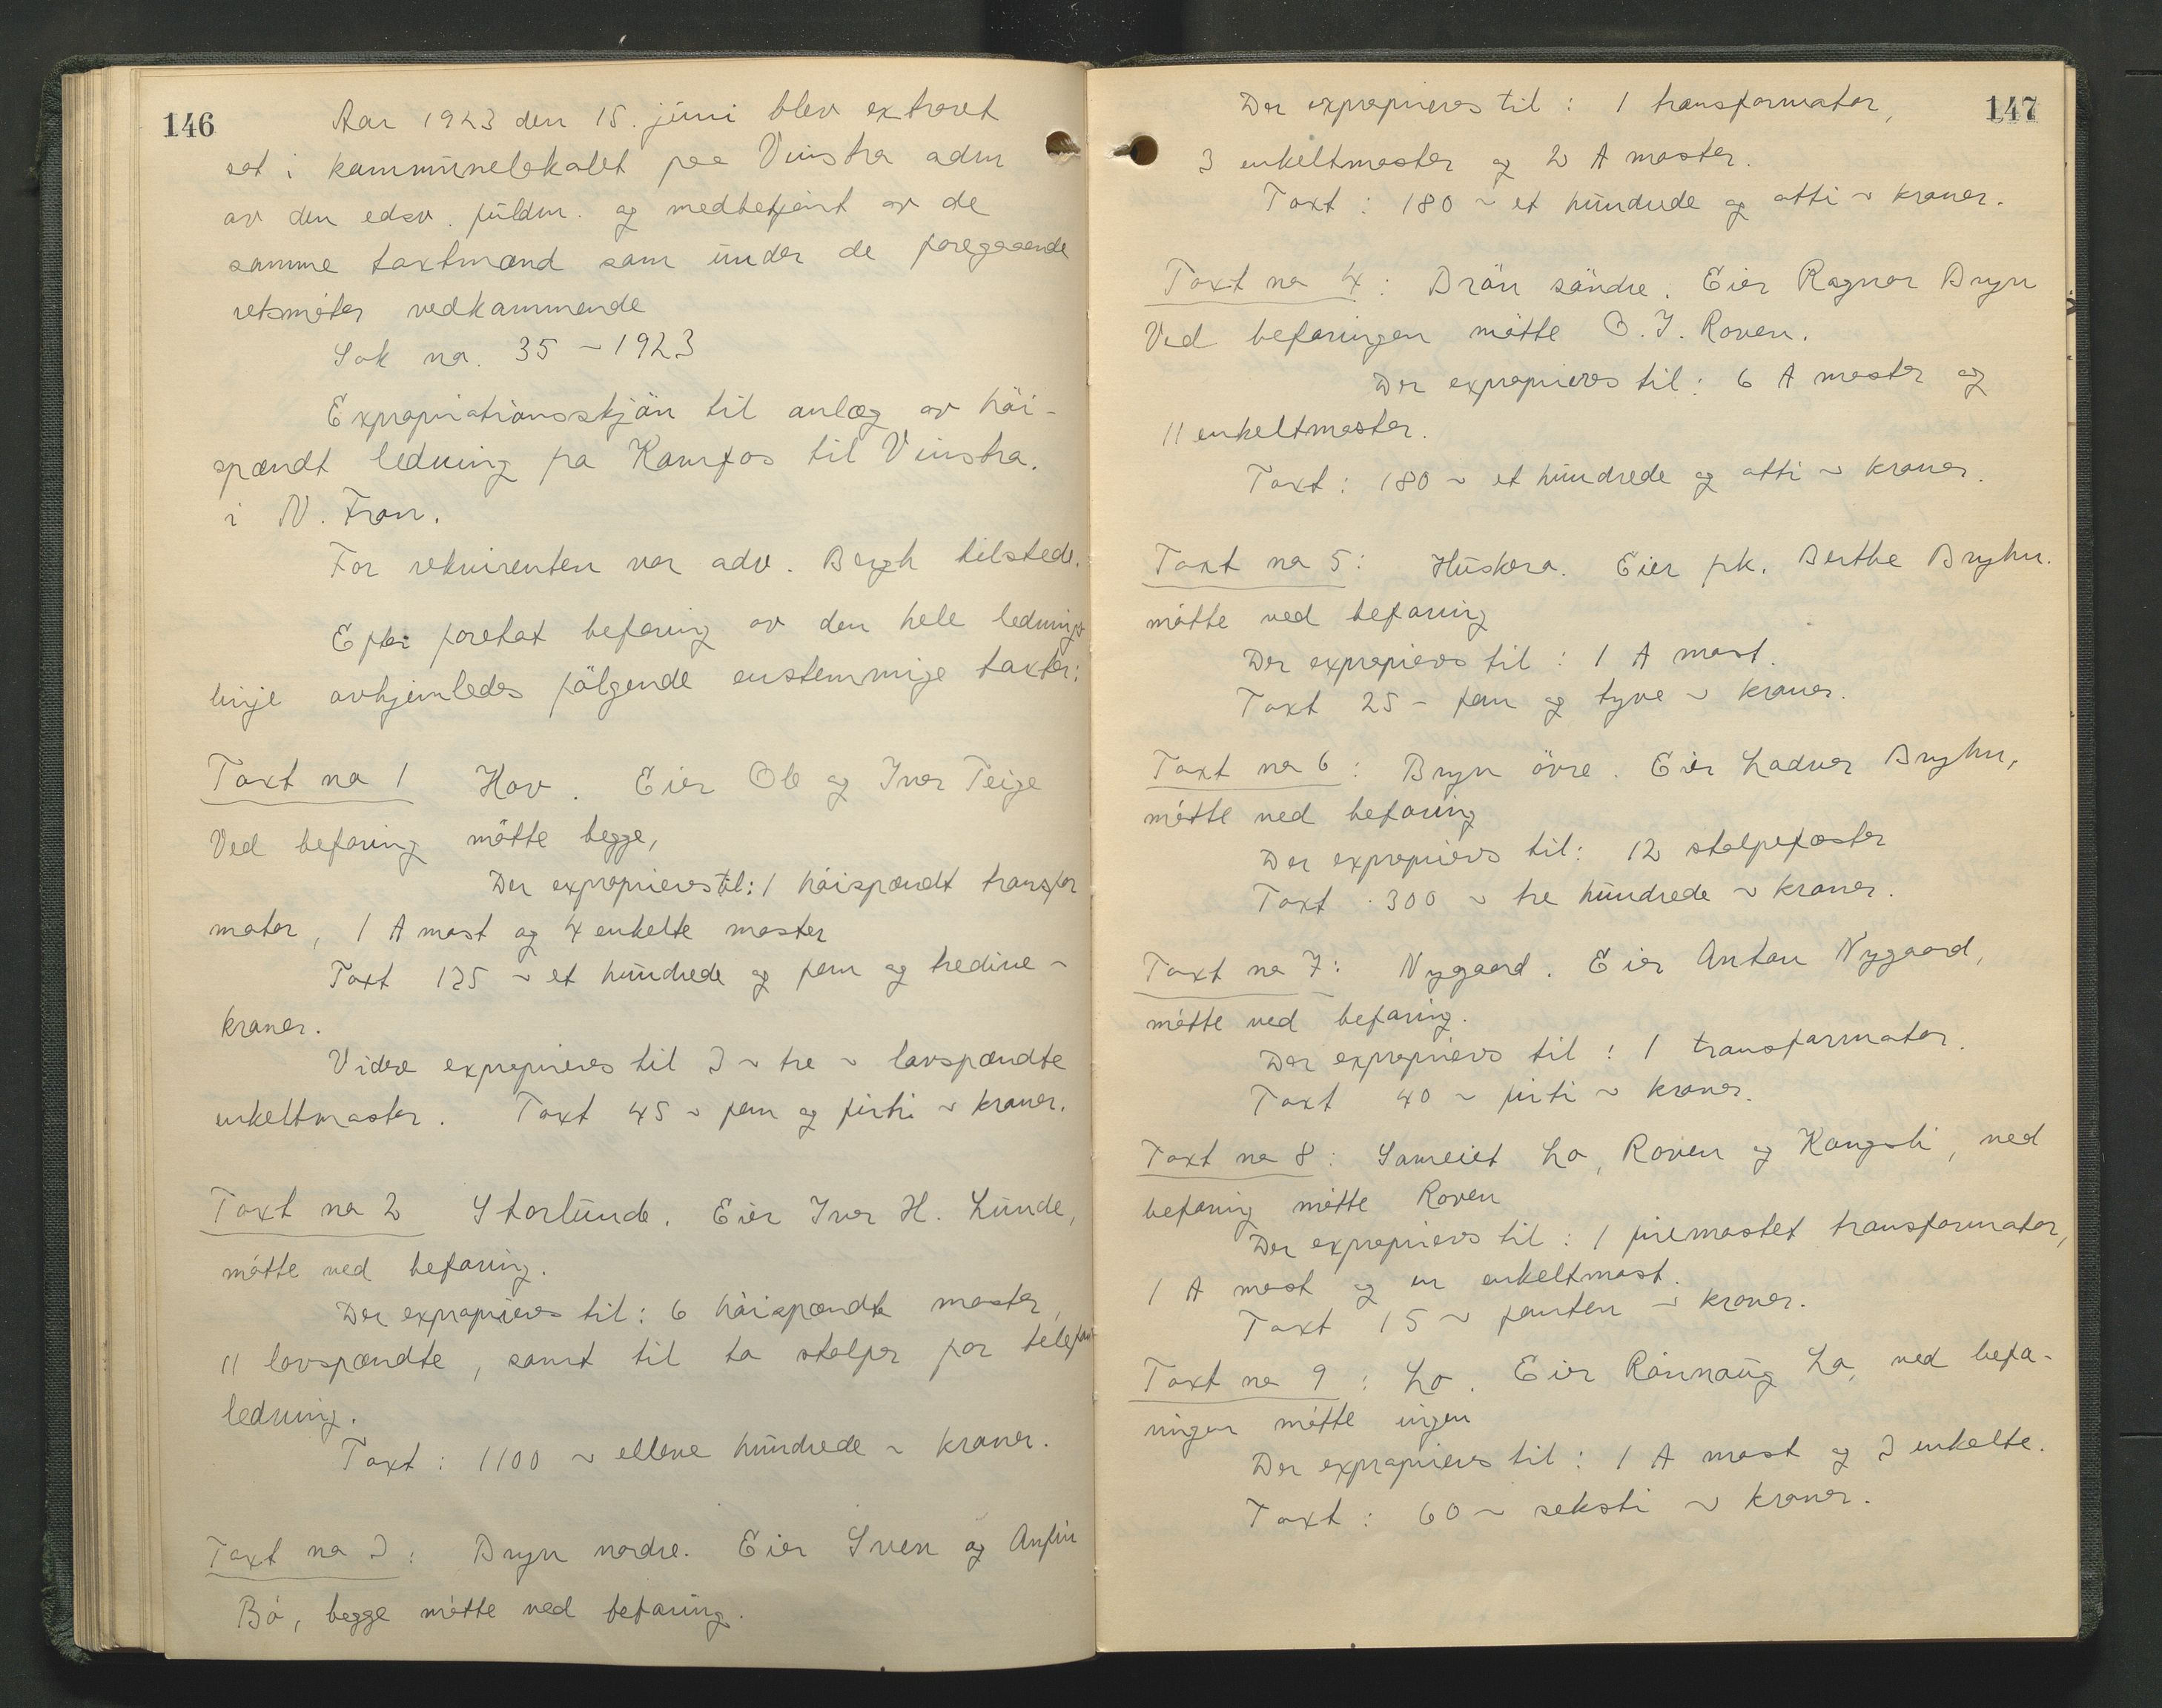 146
Aar 1923 den 15. juni blev extraret
sat i kommunelokalet paa Vinstra adm
av den edsv. fuldm. og medbetjent av de
samme taxtmænd som under de foregaaende
retsmöter vedkommende
Sak no. 35 ~ 1923
Expropriationsskjön til anlæg av höi-
spændt ledning fra Kamfos til Vinstra.
i N. Fron.
For rekvirenten var adv. Bergh tilstede.
Efter foretat befaring av den hele lednings
linje avhjemledes fölgende enstemmige taxter:
Taxt no 1 Hov. Eier Ole og Iver Teige
Ved befaring mötte begge,
Der exproprieres til: 1 höispændt transfor
mator, 1 A mast og 4 enkelte master
Taxt 135 ~ et hundrede og fem og tredive ~
kroner.
Videre exproprieres til 3 ~ tre ~ lavspændte
enkeltmaster. Taxt 45 ~ fem og firti ~ kroner.
Taxt no 2 Storlunde. Eier Iver H. Lunde,
mötte ved befaring.
Der exproprieres til: 6 höispændte master,
11 lavspændte, samt til to stolper for telefon
ledning.
Taxt: 1100 ~ elleve hundrede ~ kroner.
Taxt no 3: Bryn nordre. Eier Sven og Anfin
Bö, begge mötte ved befaring.
147
Der exproprieres til: 1 transformator,
3 enkeltmaster og 2 A master.
Taxt: 180 ~ et hundrede og otti ~ kroner.
Taxt no 4: Brön söndre. Eier Ragnar Bryn
Ved befaringen mötte O. J. Roven.
Der exproprieres til: 6 A master og
11 enkeltmaster.
Taxt: 180 ~ et hundrede og otti ~ kroner.
Taxt no 5: Huskera. Eier frk. Berthe Bryhn.
mötte ved befaring
Der exproprieres til: 1 A mast.
Taxt 25 - fem og tyve ~ kroner.
Taxt no 6: Bryn övre. Eier Ladver Bryhn,
mötte ved befaring
Der exproprieres til: 12 stolpefæster
Taxt 300 ~ tre hundrede ~ kroner.
Taxt no 7: Nygaard. Eier Anton Nygaard,
mötte ved befaring.
Der exproprieres til: 1 transformator.
Taxt 40 ~ firti ~ kroner.
Taxt no 8: Sameiet Lo, Roven og Kongsli, ved
befaring mötte Roven
Der exproprieres til: 1 firemastet transformator,
1 A mast og en enkeltmast.
Taxt 15 ~ femten ~ kroner.
Taxt no 9: Lo. Eier Rönnaug Lo, ved befa-
ringen mötte ingen
Der exproprieres til: 1 A mast og 3 enkelte.
Taxt: 60 ~ seksti ~ kroner.